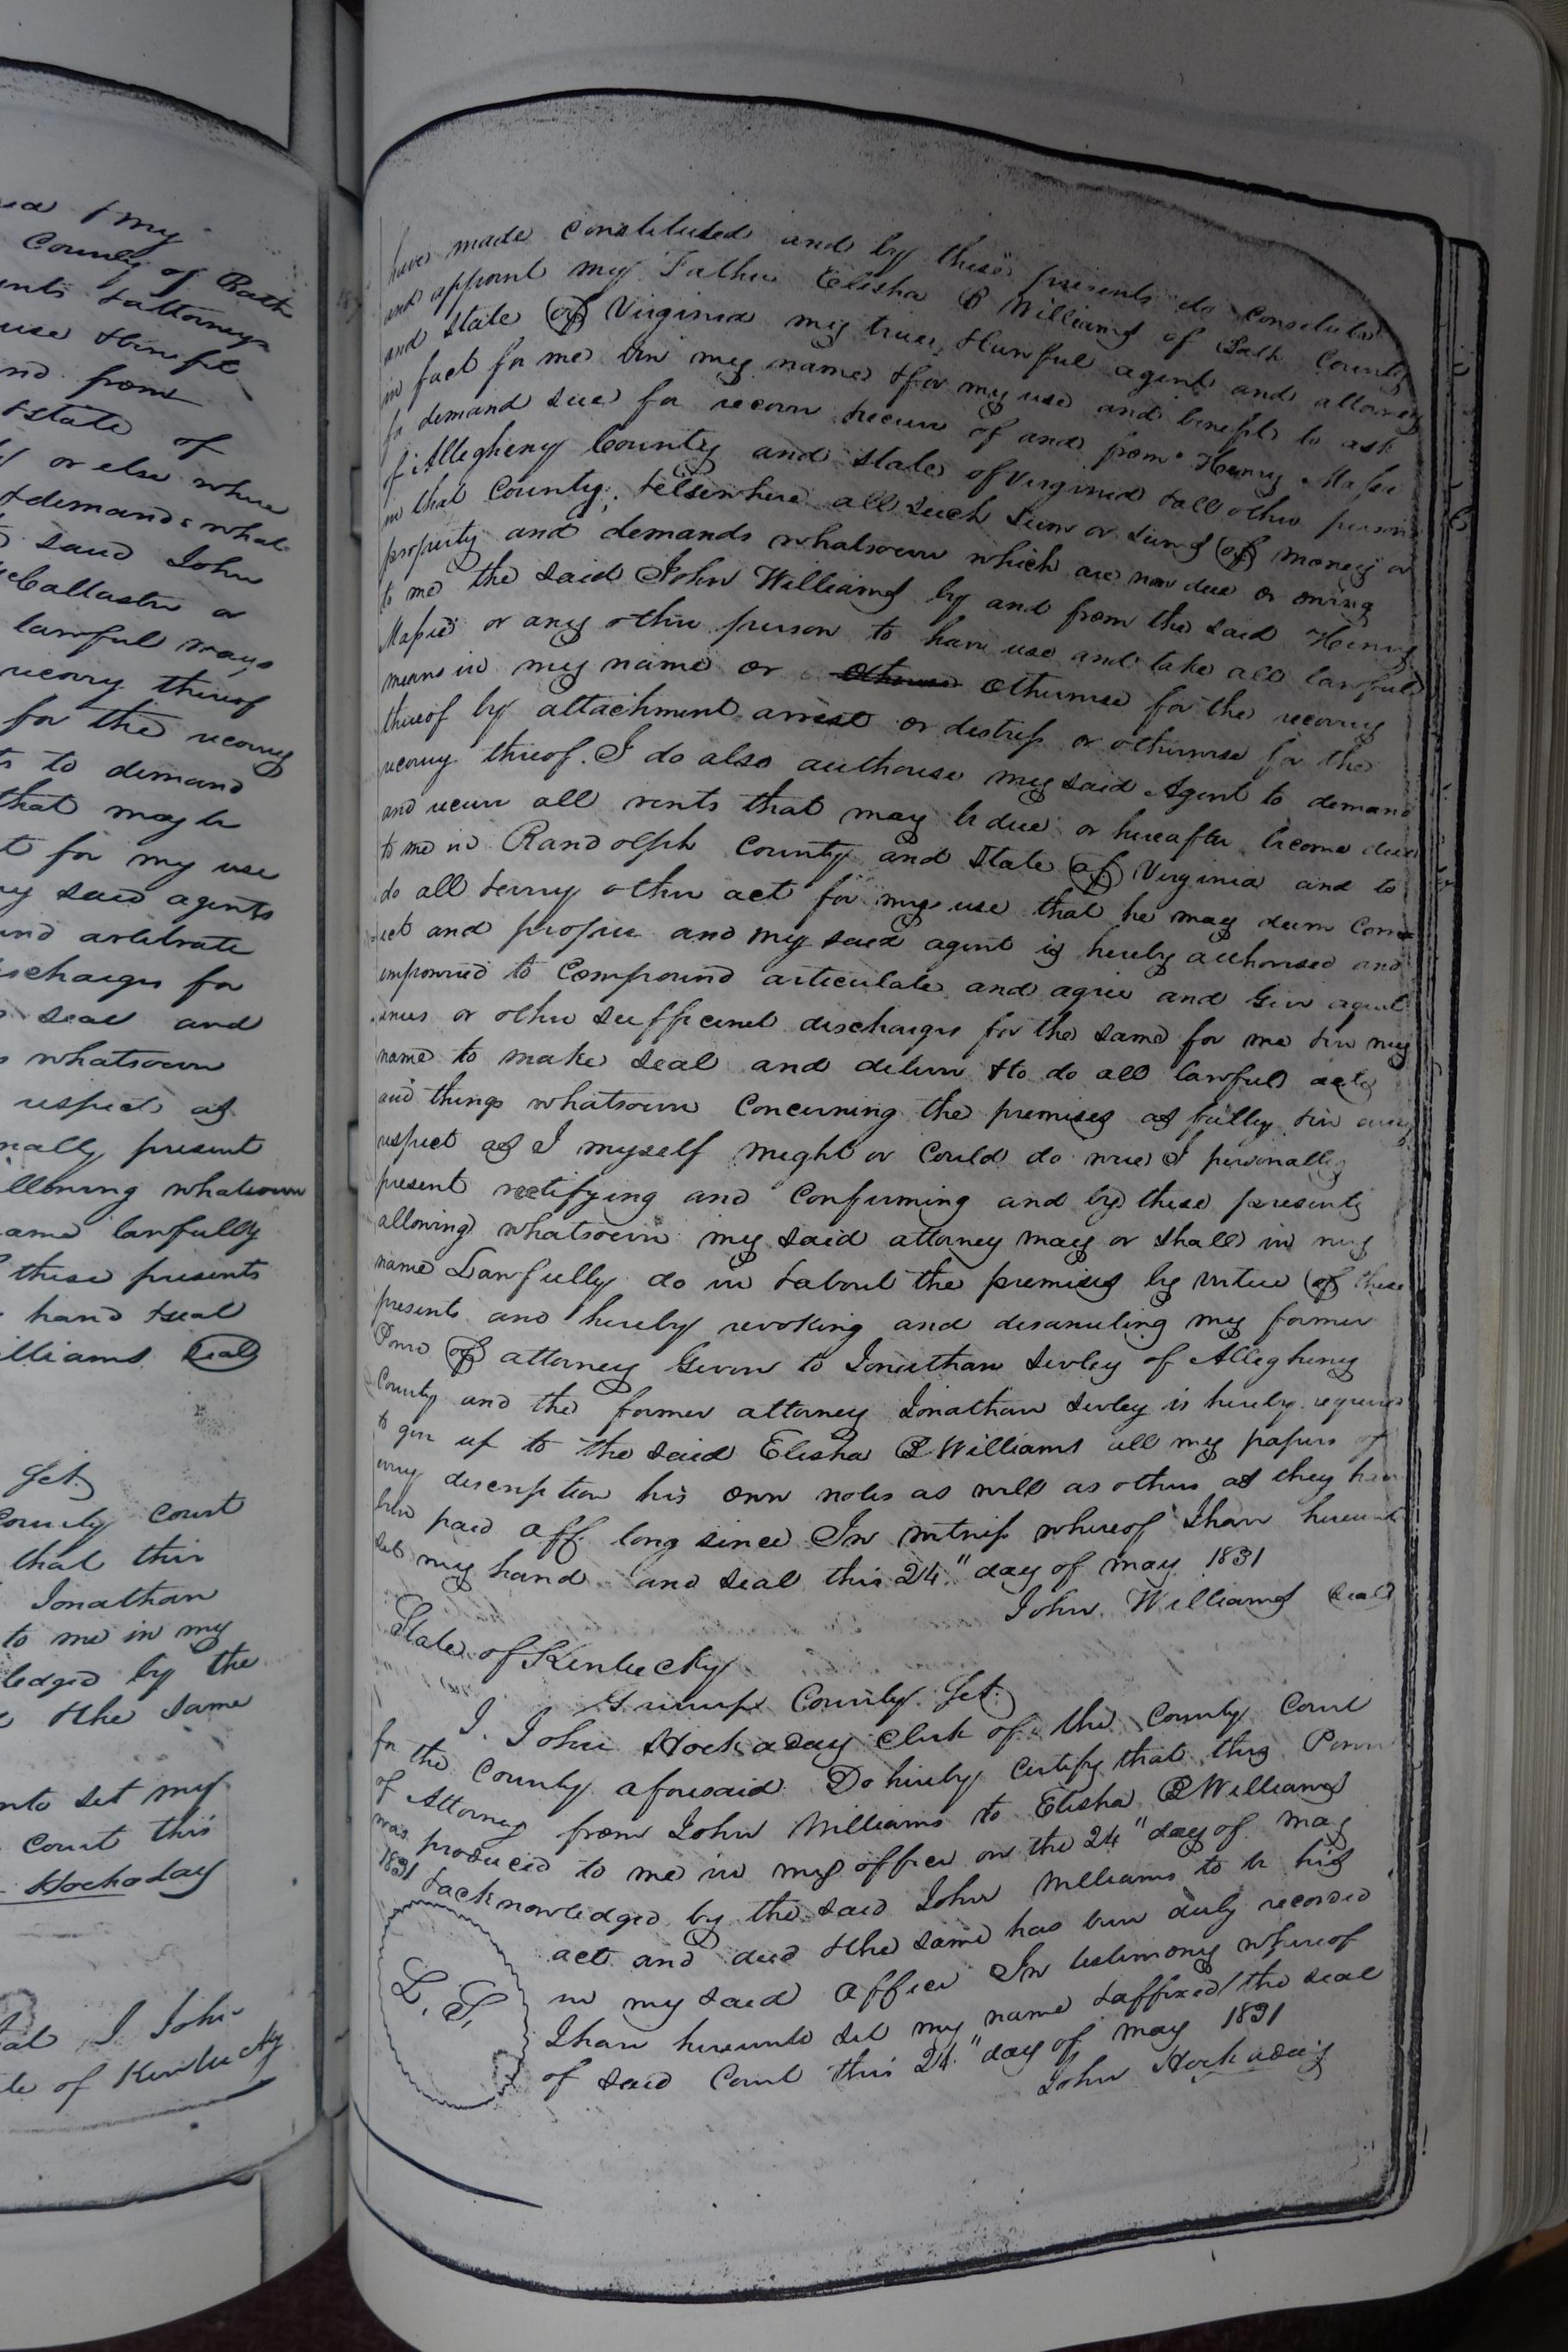 ea & my
County of Bath
ents & attorneys
use & benefit
nd from
& state of
or else where
& demands what
said John
McCallaster or
lawful ways
recovery thereof
for the recovery
ts to demand
that may be
t for my use
my said agents
and arbitrate
discharges for
seal and
s whatsoever
respect as
nally present
llowing whatsoever
ame lawfully
these presents
hand & seal
illiams Seal
Sct.
County Court
that this
Jonathan
to me in my
ledged by the
& the same
nto set my
Court this
Hockaday
I John
te of Kentucky
have made constituted and by these presents do constitute
and appoint my Father Elisha B Williams of Bath County
and State of Virginia my true & lawful agent and attorney
in fact for me & in my name & for my use and benefit to ask
for demand sue for recover receive of and from Henry Massie
of Allegheny County and State of Virginia & all other persons
in that County, & elsewhere all such sum or sums of money or
property and demands whatsoever which are now due or owing
to me the said John Williams by and from the said Henry
Massie or any other person to have use and take all lawful
means in my name or otherwise for the recovery
thereof by attachment arrest or distress or otherwise for the
recovery thereof. I do also authorise my said Agent to demand
and receive all rents that may be due or hereafter become due
to me in Randolph County and State of Virginia and to
do all & every other act for my use that he may deem corr
ect and proper and my said agent is hereby authorised and
empowered to compound articulate and agree and Give aquit
ances or other sufficient discharges for the same for me & in my
name to make seal and deliver & to do all lawful acts
and things whatsoever Concerning the premises as fully & in every
respect as I myself might or Could do were I personally
present ratifying and Confirming and by these presents
allowing whatsoever my said attorney may or shall in my
name Lawfully do in & about the premises by virtue of these
presents and hereby revoking and disanuling my former
Power of attorney Given to Jonathan Sivley of Allegheny
County and the former attorney Jonathan Sivley is hereby required
to give up to the said Elisha B Williams all my papers of
every description his own notes as well as others as they have
been paid off long since In witness whereof I have hereunto
set my hand and seal this 24" day of may 1831
John Williams Seal
State of Kentucky
County Sct.
I. John Hockaday Clerk of the County Court
for the County aforesaid Do hereby certify that this Power
of Attorney from John Williams to Elisha B Williams
was produced to me in my office on the 24" day of may
1831 & acknowledged by the said John Williams to be his
act and deed & the same has been duly recorded
in my said office In testimony whereof
I have hereunto set my name & affixed the seal
of said Court this 24" day of may 1831
John Hockaday
L. S.